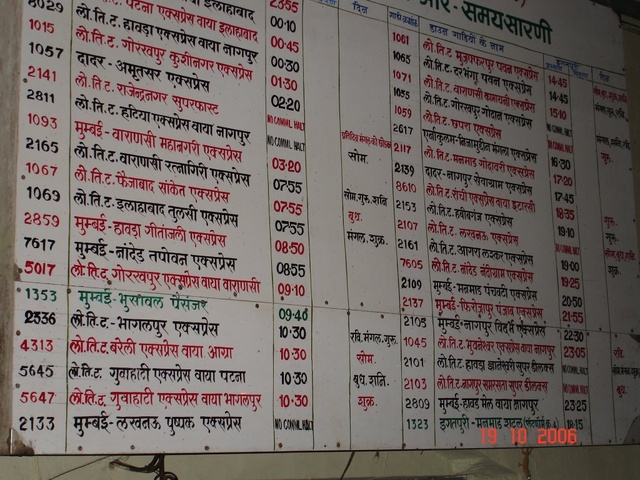 और-समयसारणी
दिन
डाउन गाडियों के नाम
8029 लो.ति.ट. पटना एक्सप्रेस वाया इलाहाबाद 23:55
1015 लो.ति.ट. हावडा एक्सप्रेस वाया नागपुर 00:10
लो.ति.ट. गोरखपुर कुशीनगर एक्सप्रेस 00:45
1057 दादर - अमृतसर एक्सप्रेस 00:30
2141 लो.ति.ट. राजेन्द्रनगर सुपरफास्ट 01:30
2811 लो.ति.ट. हटिया एक्सप्रेस वाया नागपुर 02:20
1093 मुम्बई - वाराणसी महानगरी एक्सप्रेस NO COMML HALT
2165 लो.ति.ट. वाराणसी रत्नागिरी एक्सप्रेस 03:20 सोम.
1067 लो.ति.ट. फैजाबाद साकेत एक्सप्रेस 07:55
1069 लो.ति.ट. इलाहाबाद तुलसी एक्सप्रेस 07:55 सोम. गुरु. शनि
2859 मुम्बई - हावडा गीतांजली एक्सप्रेस 07:55 बुध.
7617 मुम्बई - नांदेड तपोवन एक्सप्रेस 08:50 मंगल. शुक्र.
5017 लो.ति.ट. गोरखपुर एक्सप्रेस वाया वाराणसी 08:55
1353 मुम्बई - भुसावल पैसेंजर 09:10
2336 लो.ति.ट. - भागलपुर एक्सप्रेस 09:40
4313 लो.ति.ट. बरेली एक्सप्रेस वाया आग्रा 10:30 रवि. मंगल. गुरु.
5645 लो.ति.ट. गुवाहाटी एक्सप्रेस वाया पटना 10:30 सोम.
5647 लो.ति.ट. गुवाहाटी एक्सप्रेस वाया भागलपुर 10:30 बुध. शनि.
2133 मुम्बई - लखनऊ पुष्पक एक्सप्रेस 10:30 शुक्र.
NO COMML HALT
1061 लो.ति.ट. मुजफ्फरपुर पवन एक्सप्रेस 14:45
1065 लो.ति.ट. दरभंगा पवन एक्सप्रेस 14:45
1071 लो.ति.ट. वाराणसी कामायनी एक्सप्रेस 15:10
1055 लो.ति.ट. गोरखपुर गोदान एक्सप्रेस
1059 लो.ति.ट. छपरा एक्सप्रेस
2617 एर्नाकुलम - निजामुद्दीन मंगला एक्सप्रेस
2117 लो.ति.ट. मनमाड गोदावरी एक्सप्रेस 16:30 गुरु.
2139 दादर - नागपुर सेवाग्राम एक्सप्रेस 17:20
8610 लो.ति.ट. रांची एक्सप्रेस वाया इटारसी 17:45
2153 लो.ति.ट. हबीबगंज एक्सप्रेस 18:35
2107 लो.ति.ट. लखनऊ एक्सप्रेस 19:10
2161 लो.ति.ट. आगरा लश्कर एक्सप्रेस
7605 लो.ति.ट. नांदेड नंदीग्राम एक्सप्रेस 19:00
2109 मुम्बई - मनमाड पंचवटी एक्सप्रेस 19:25
2137 मुम्बई - फिरोजपुर पंजाब एक्सप्रेस 20:50
2105 मुम्बई - नागपुर विदर्भ एक्सप्रेस 21:55
1045 लो.ति.ट. भुवनेश्वर एक्सप्रेस वाया नागपुर 22:30
2101 लो.ति.ट. हावडा ज्ञानेश्वरी सुपर डीलक्स 23:05 रवि.
2103 लो.ति.ट. नागपुर समरसता सुपर डीलक्स NO COMML HALT
2809 मुम्बई - हावडा मेल वाया नागपुर 23:25
1323 इगतपुरी - मनमाड शटल 18:15
19 10 2006